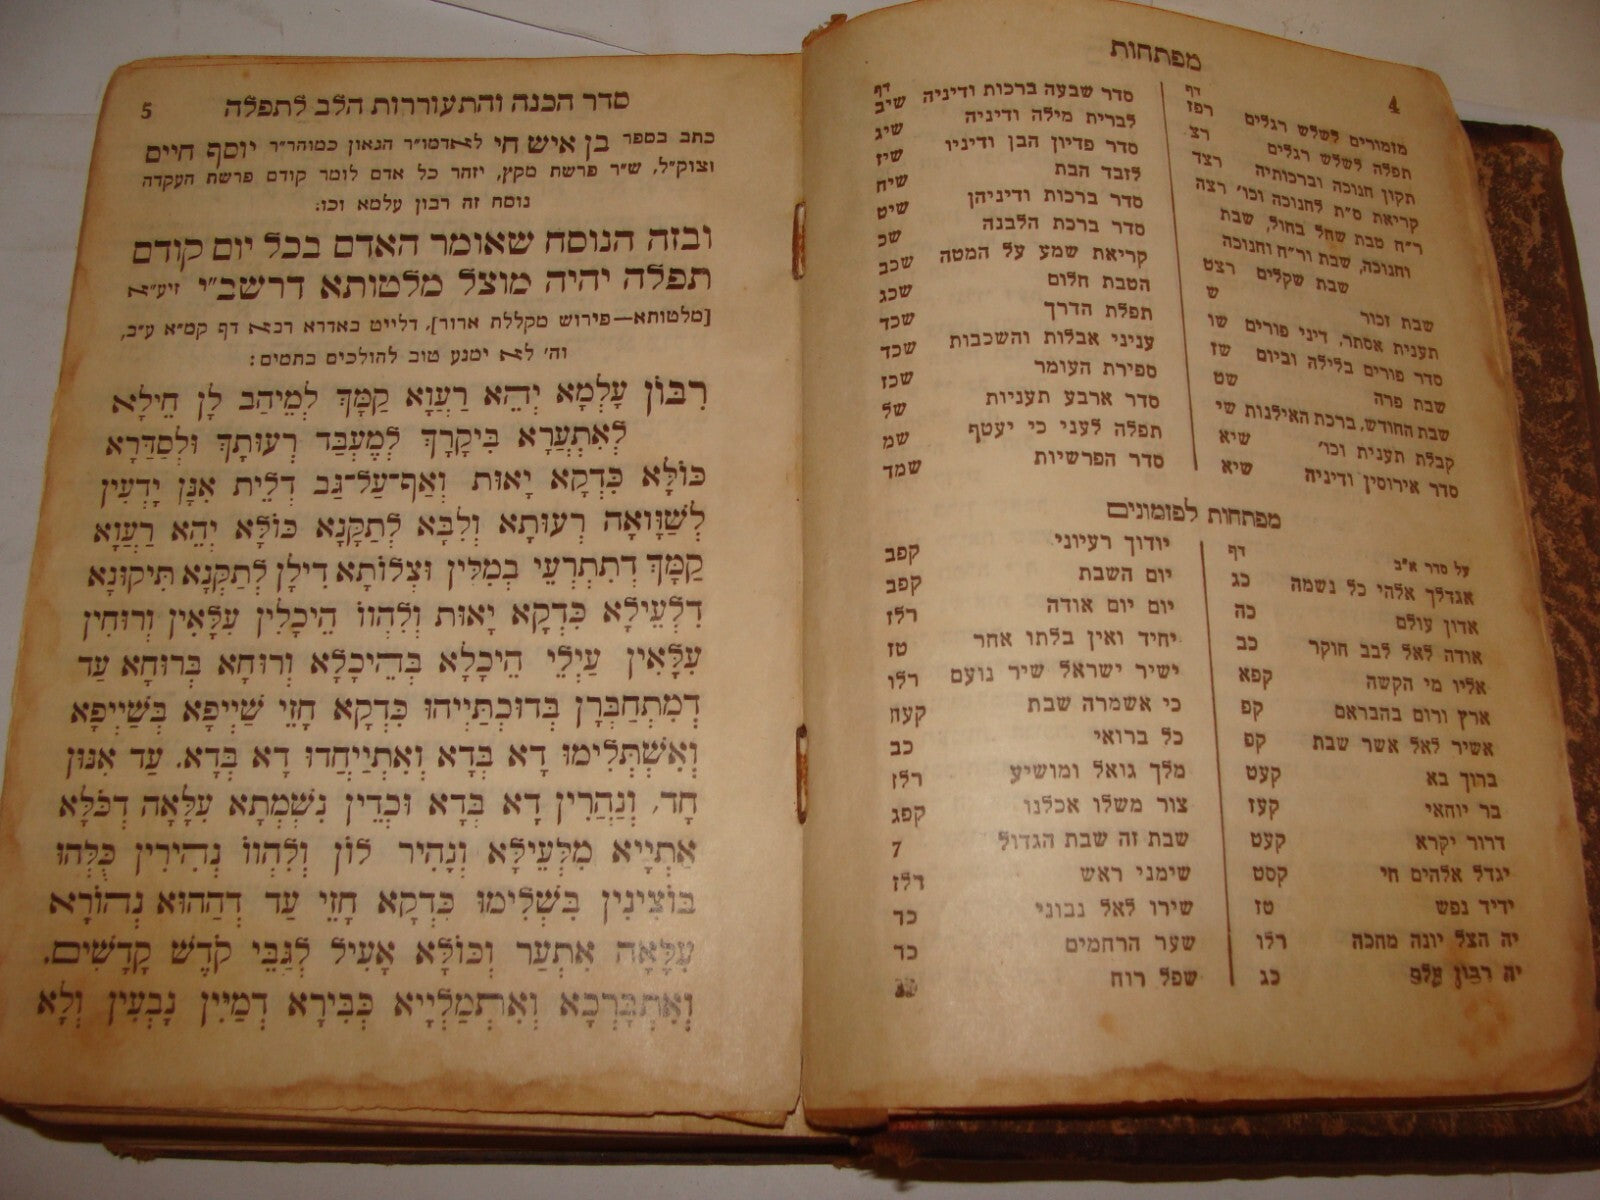 4
מפתחות
דף
מזמורים לשלש רגלים רפז
תפלה לשלש רגלים רצ
תקון חנוכה וברכותיה רצד
קריאת ס״ת לחנוכה וכו׳ רצה
ר״ח טבת שחל בחול, שבת
וחנוכה, שבת ור״ח וחנוכה
שבת שקלים רצט
שבת זכור ש
תענית אסתר, דיני פורים שו
סדר פורים בלילה וביום שז
שבת פרה שט
שבת החודש, ברכת האילנות שי
קבלת תענית וכו׳ שיא
סדר אירוסין ודיניה שיא
דף
סדר שבעה ברכות ודיניה שיב
לברית מילה ודיניה שיג
סדר פדיון הבן ודיניו שיז
לזבד הבת שיח
סדר ברכות ודיניהן שיט
סדר ברכת הלבנה שכ
קריאת שמע על המטה שכב
הטבת חלום שכג
תפלת הדרך שכד
עניני אבלות והשכבות שכד
ספירת העומר שכז
סדר ארבע תעניות של
תפלה לעני כי יעטף שמ
סדר הפרשיות שמד
מפתחות לפזמונים
על סדר א״ב דף
אגדלך אלהי כל נשמה כג
אדון עולם כה
אודה לאל לבב חוקר כב
אליו מי הקשה קפא
ארץ ורום בהבראם קפ
אשיר לאל אשר שבת קפ
ברוך בא קעט
בר יוחאי קעז
דרור יקרא קעט
יגדל אלהים חי קסט
ידיד נפש טז
יה הצל יונה מחכה רלו
יה רבון עלם כג
יודוך רעיוני קפב
יום השבת קפב
יום יום אודה רלז
יחיד ואין בלתו אחר טז
ישיר ישראל שיר נועם רלו
כי אשמרה שבת קעח
כל ברואי כב
מלך גואל ומושיע רלז
צור משלו אכלנו קפג
שבת זה שבת הגדול 7
שימני ראש רלז
שירו לאל נבוני כד
שער הרחמים כד
שפל רוח
סדר הכנה והתעוררות הלב לתפלה 5
כתב בספר בן איש חי לאדמו״ר הגאון כמוהר״ר יוסף חיים
וצוק״ל, ש״ר פרשת מקץ, יזהר כל אדם לומר קודם פרשת העקדה
נוסח זה רבון עלמא וכו:
ובזה הנוסח שאומר האדם בכל יום קודם
תפלה יהיה מוצל מלטותא דרשב״י זיע״א
[מלטותא—פירוש מקללת ארור], דלייט באדרא רבא דף קמ״א ע״ב,
וה׳ לא ימנע טוב להולכים בתמים:
רִבּוֹן עָלְמָא יְהֵא רַעֲוָא קַמָּךְ לְמֵיהַב לָן חֵילָא
לְאִתְעָרָא בִּיקָרָךְ לְמֶעְבַּד רְעוּתָךְ וּלְסַדְּרָא
כּוֹלָּא כִּדְקָא יָאוּת וְאַף־עַל־גַּב דְּלֵית אֲנָן יָדְעִין
לְשַׁוָּואָה רְעוּתָא וְלִבָּא לְתַקָּנָא כּוֹלָּא יְהֵא רַעֲוָא
קַמָּךְ דְּתִתְרְעֵי בְמִלִּין וּצְלוֹתָא דִילָן לְתַקְּנָא תִּיקּוּנָא
דִּלְעֵילָּא כִּדְקָא יָאוּת וְלִהְווֹ הֵיכָלִין עִלָּאִין וְרוּחִין
עִלָּאִין עַיְלֵי הֵיכָלָא בְּהֵיכָלָא וְרוּחָא בְּרוּחָא עַד
דְּמִתְחַבְּרָן בְּדוּכְתַּיְיהוּ כִּדְקָא חָזֵי שַׁיְיפָא בְּשַׁיְיפָא
וְאִשְׁתְּלִימוּ דָא בְּדָא וְאִתְיַיחֲדוּ דָא בְּדָא. עַד אִנּוּן
חָד, וְנַהֲרִין דָא בְּדָא וּכְדֵין נִשְׁמְתָא עִלָּאָה דְּכֹלָּא
אַתְיָיא מִלְּעֵילָּא וְנָהִיר לוֹן וְלִהְווֹ נְהִירִין כֻּלְּהוּ
בּוּצִינִין בִּשְׁלִימוּ כִּדְקָא חָזֵי עַד דְּהַהוּא נְהוֹרָא
עִלָּאָה אִתְּעַר וְכוֹלָּא אָעִיל לְגַבֵּי קֹדֶשׁ קָדָשִׁים.
וְאִתְבָּרְכָא וְאִתְמַלְיָיא כְּבֵירָא דְּמַיִין נָבְעִין וְלָא